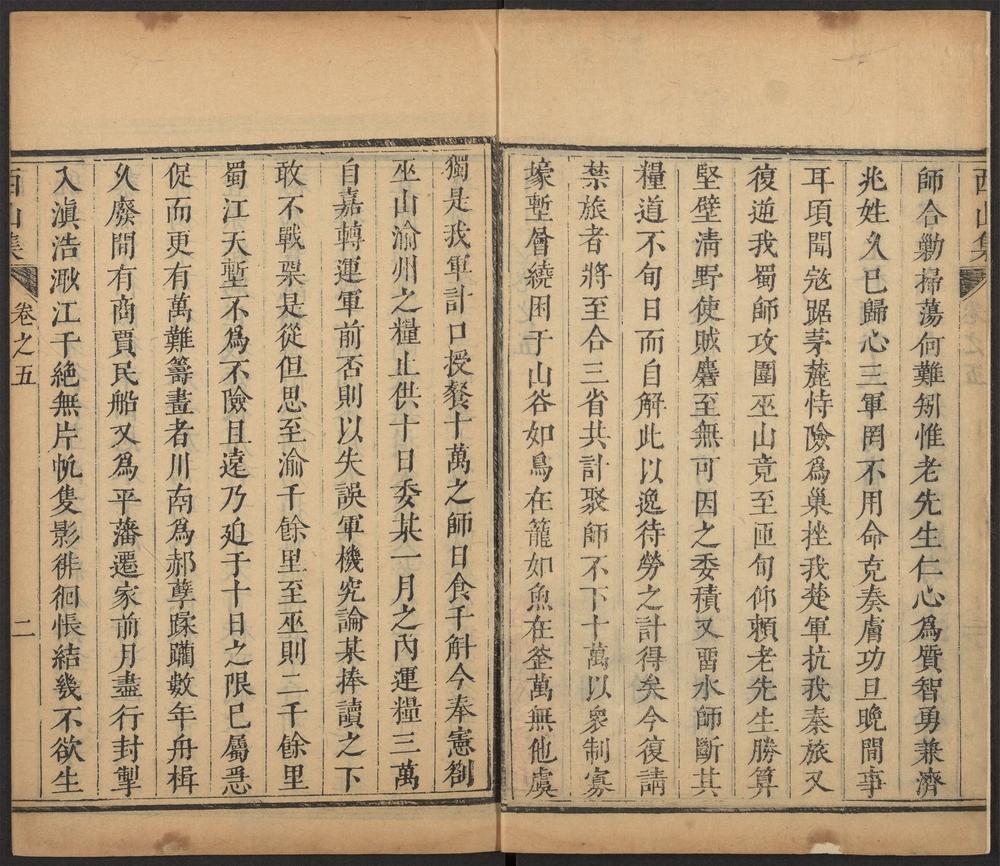 西山集
師合勦掃蕩何難矧惟老先生仁心爲質智勇兼濟
兆姓久巳歸心三軍罔不用命克奏膚功旦晚間事
耳頃聞宼踞茅麓恃險爲巢挫我楚軍抗我秦旅又
復逆我蜀師攻圍巫山竟至匝旬仰頼老先生勝算
堅壁淸野使賊麕至無可因之委積又畱水師斷其
糧道不旬日而自解此以逸待勞之計得矣今復請
禁旅者將至合三省共計聚師不下十萬以衆制寡
壕塹層繞困于山谷如鳥在籠如魚在筌萬無他虞
獨是我軍計口授餐十萬之師日食千斛今奉憲劄
巫山渝州之糧止供十日委某一月之內運糧三萬
自嘉轉運軍前否則以失誤軍機究論某捧讀之下
敢不戰栗是從但思至渝千餘里至巫則二千餘里
蜀江天塹不爲不險且遠乃廹于十日之限巳屬忢
促而更有萬難籌畫者川南爲郝孽蹂躪數年舟楫
久廢間有商賈民船又爲平藩遷家前月盡行封掣
入滇浩渺江干絶無片帆隻影徘徊悵結幾不欲生
西山集
卷之五
二